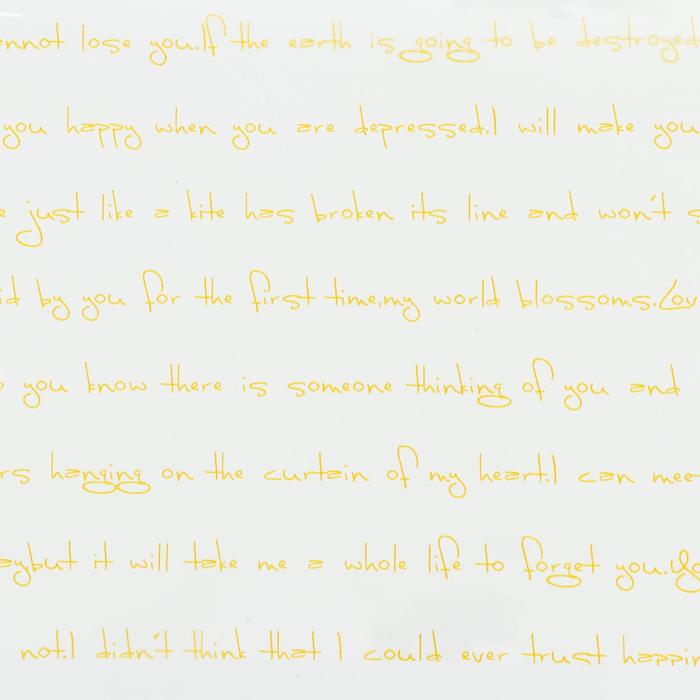 annot lose you.If the earth is going to be destroyed
you happy when you are depressed.I will make you
e just like a kite has broken its line and won't s
id by you for the first time,my world blossoms.Lov
you know there is someone thinking of you and
rs hanging on the curtain of my heart.I can mee
aybut it will take me a whole life to forget you.Yo
not.I didn't think that I could ever trust happin